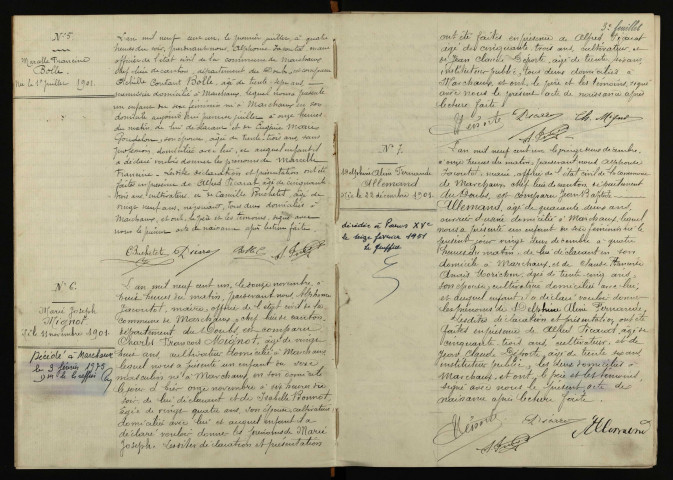 N° 5.
Marcelle Francine
Bolle
Née le 1er juillet 1901.
L'an mil neuf cent un, le premier juillet, à quatre
heures du soir, par devant nous, Alphonse Jacoutot, maire
officier de l'état civil de la commune de Marchaux
chef lieu de canton, département du Doubs, est comparu
Achille Constant Bolle, âgé de trente sept ans
menuisier domicilié à Marchaux, lequel nous a présenté
un enfant du sexe féminin né à Marchaux en son
domicile aujourd'hui premier juillet à onze heures
du matin, de lui déclarant et de Eugénie Marie
son épouse, âgée de trente trois ans sans
profession domiciliée avec lui, et auquel enfant il
a déclaré vouloir donner les prénoms de Marcelle
Francine. Lesdites déclaration et présentation ont été
faites en présence de Alfred Picaut, âgé de cinquante
trois ans, cultivateur et Camille Buchotet, âgé de
vingt neuf ans, tous deux domiciliés à
Marchaux, et ont, le père et les témoins, signé avec
nous le présent acte de naissance après lecture faite.
N° 6.
Marie Joseph
Mignot
Né le 11 novembre 1901.
Décédé à Marchaux
le 3 février 1975
L'an mil neuf cent un, le douze novembre, à
huit heures du matin, par devant nous Alphonse
Jacoutot, maire, officier de l'état civil de la
commune de Marchaux, chef lieu de canton,
département du Doubs, est comparu
Charles François Mignot, âgé de vingt
huit ans, cultivateur domicilié à Marchaux
lequel nous a présenté un enfant du sexe
masculin né à Marchaux en son domicile
le jour d'hier onze novembre à six heures du
soir, de lui déclarant et de Isabelle
âgée de vingt quatre ans, son épouse, cultivatrice
domiciliée avec lui et auquel enfant il a
déclaré vouloir donner les prénoms de Marie
Joseph. Lesdites déclaration et présentation
3e feuillet
ont été faites en présence de Alfred Picaut
âgé de cinquante trois ans, cultivateur et
de Jean Claude Laporte, âgé de trente six ans
instituteur public, tous deux domiciliés à
Marchaux, et ont, le père et les témoins, signé
avec nous le présent acte de naissance après
lecture faite.
N° 7.
Delphine Aline Fernande
Allemand
Née le 22 décembre 1901.
décédée à Paris XVe
le seize février 1981
le greffier
L'an mil neuf cent un, le vingt deux décembre,
à onze heures du matin, par devant nous Alphonse
Jacoutot, maire, officier de l'état civil de la commune
de Marchaux, chef lieu de canton, département
du Doubs, est comparu Jean Baptiste
Allemand, âgé de quarante deux ans,
domicilié à Marchaux, lequel
nous a présenté un enfant du sexe féminin né le
présent jour vingt deux décembre à quatre
heures du matin, de lui déclarant en son
domicile à Marchaux, et de
âgée de trente cinq ans,
son épouse, cultivatrice domiciliée avec lui,
et auquel enfant il a déclaré vouloir donner
les prénoms de Delphine Aline Fernande.
Lesdites déclaration et présentation ont été
faites en présence de Alfred Picaut, âgé de
cinquante trois ans, cultivateur, et de
Jean Claude Laporte, âgé de trente six ans
instituteur public, tous deux domiciliés à
Marchaux, et ont, le père et les témoins,
signé avec nous le présent acte de
naissance après lecture faite.